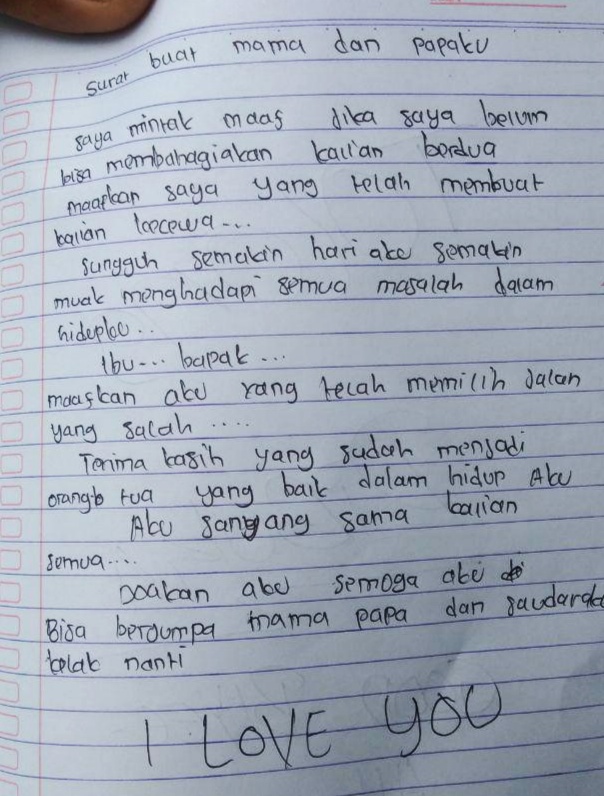 surat buat mama dan papaku
saya mintak maaf jika saya belum
bisa membahagiakan kalian berdua
maapkan saya yang telah membuat
kalian kecewa...
sungguh semakin hari aku semakin
muak menghadapi semua masalah dalam
hidupku..
Ibu... bapak...
maafkan aku yang telah memilih jalan
yang salah ....
Terima kasih yang sudah menjadi
orang-b tua yang baik dalam hidup Aku
Aku sangyang sama kalian
semua....
Doakan aku semoga aku
Bisa berjumpa mama papa dan saudarak
kelak nanti
I LOVE YOU